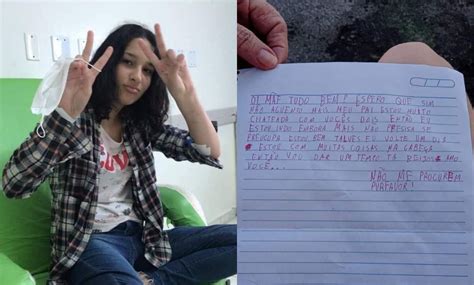 OI MÃE TUDO BEM? ESPERO QUE SIM
NÃO AGUENTO MAIS MEU PAI ESTOU MUITO
CHATEADA COM VOCÊS DOIS ENTÃO EU
ESTOU INDO EMBORA MAIS NÃO PRECISA SE
PREOCUPA ESTOU BEM TALVES EU VOLTE UM DIA
ESTOU COM MUITAS COISAS NA CABEÇA
ENTÃO VOU DAR UM TEMPO TÁ BEIJOS AMO
VOCÊ...
NÃO ME PROCUREM
PORFAVOR!